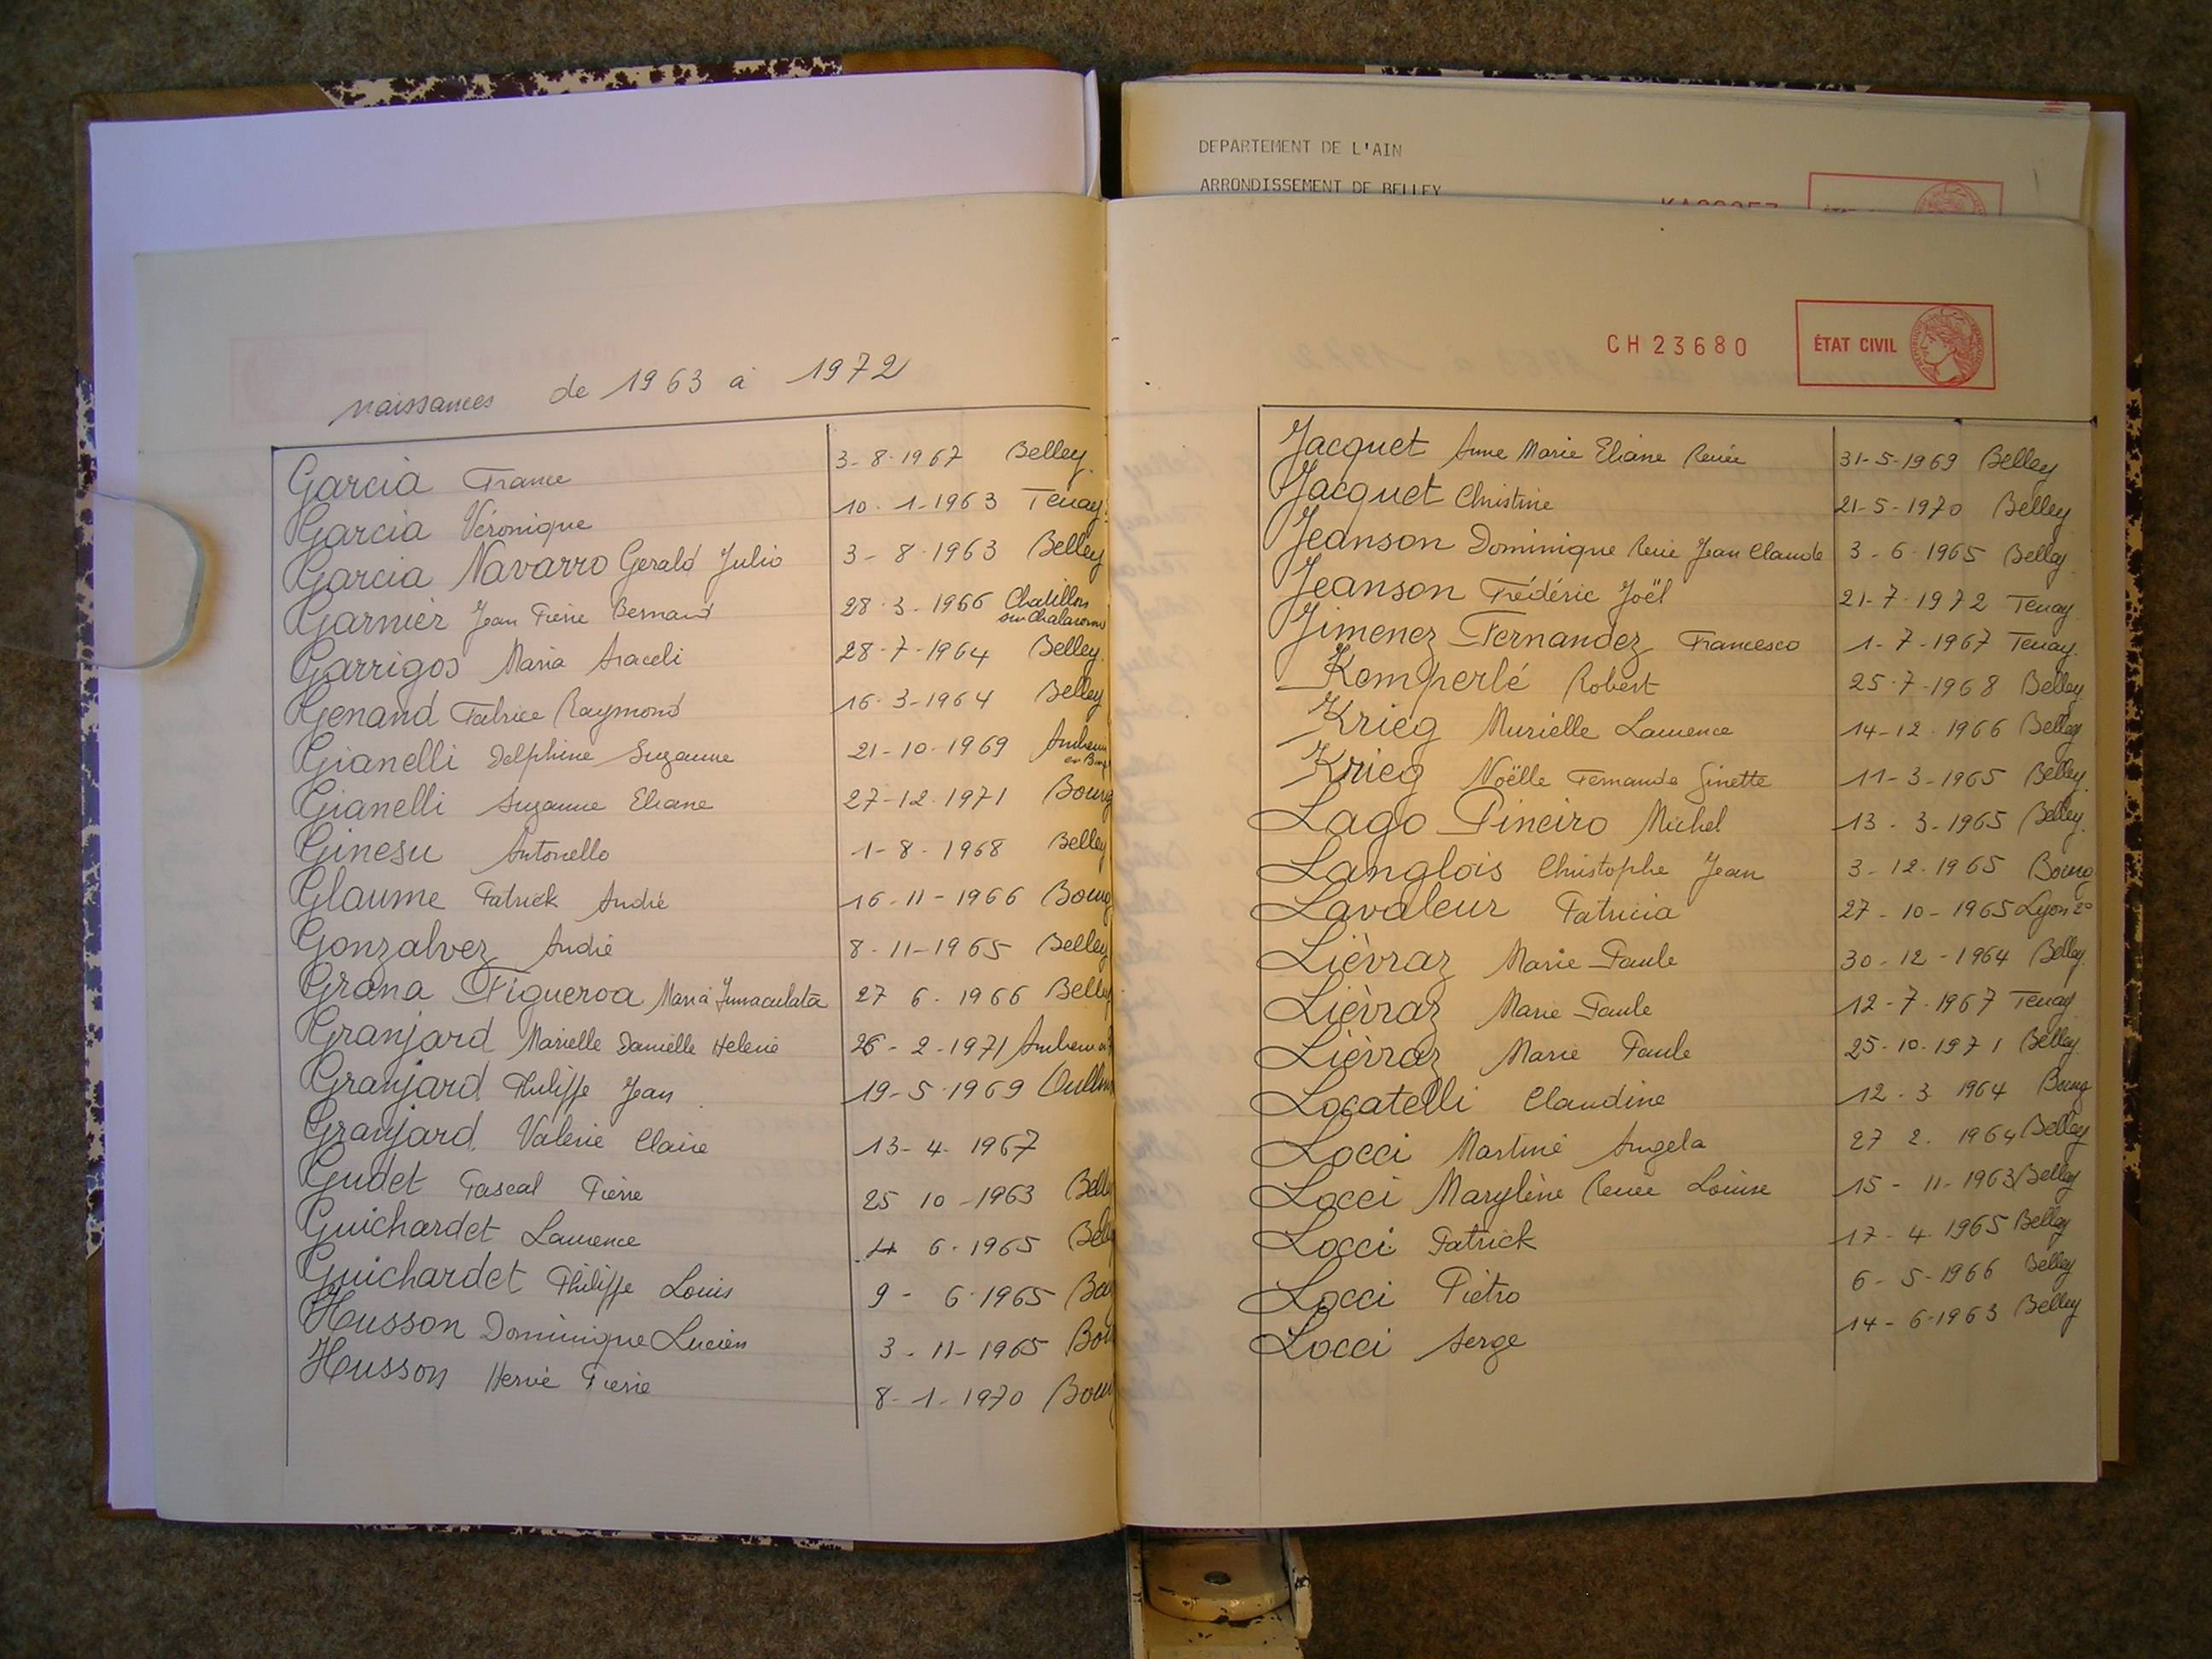 DEPARTEMENT DE L'AIN
ARRONDISSEMENT DE BELLEY
naissances de 1963 à 1972
Garcia France 3-8-1967 Belley
Garcia Véronique 10-1-1963 Tenay
Garcia Navarro Gerald Julio 3-8-1963 Belley
Garnier Jean Pierre Bernard 28-3-1966 Chatillon sur Chalaronne
Garrigos Maria Araceli 28-7-1964 Belley
Genand Patrice Raymond 16-3-1964 Belley
Gianelli Delphine Suzanne 21-10-1969
Gianelli Suzanne Eliane 27-12-1971 Bourg
Ginesu Antonello 1-8-1968 Belley
Glaume Patrick André 16-11-1966 Bourg
Gonzalvez André 8-11-1965 Belley
Grana Figueroa Maria Inmaculata 27 6-1966 Belley
Granjard Marielle Danielle Helene 26-2-1971
Granjard Philippe Jean 19-5-1969
Granjard Valerie Claire 13-4-1967
Gudet Pascal Pierre 25 10-1963 Belley
Guichardet Laurence 4 6-1965
Guichardet Philippe Louis 9-6-1965
Husson Dominique Lucien 3-11-1965
Husson Hervé Pierre 8-1-1970 Bourg
CH 23680
ÉTAT CIVIL
Jacquet Anne Marie Eliane Renée 31-5-1969 Belley
Jacquet Christine 21-5-1970 Belley
Jeanson Dominique René Jean Claude 3-6-1965 Belley
Jeanson Frédéric Joël 21-7-1972 Tenay
Jimenez Fernandez Francesco 1-7-1967 Tenay
Komperlé Robert 25-7-1968 Belley
Krieg Murielle Laurence 14-12-1966 Belley
Krieg Noëlle Fernande Ginette 11-3-1965 Belley
Lago Pineiro Michel 13-3-1965 Belley
Langlois Christophe Jean 3-12-1965 Bourg
Lavaleur Patricia 27-10-1965 Lyon 2e
Lièvraz Marie-Paule 30-12-1964 Belley
Lièvraz Marie-Paule 12-7-1967 Tenay
Lièvraz Marie Paule 25-10-1971 Belley
Locatelli Claudine 12-3 1964 Bourg
Locci Martine Angela 27 2. 1964 Belley
Locci Marylène Renée Louise 15-11-1963 Belley
Locci Patrick 17-4-1965 Belley
Locci Pietro 6-5-1966 Belley
Locci Serge 14-6-1963 Belley